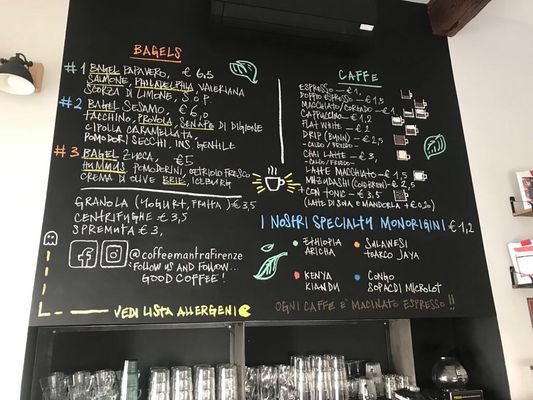 BAGELS
#1 BAGEL PAPAVERO, € 6,5
SALMONE, PHILADELPHIA, VALERIANA
SCORZA DI LIMONE, S.O.P.
#2 BAGEL SESAMO, € 6,0
TACCHINO, PROVOLA, SENAPE DI DIGIONE
CIPOLLA CARAMELLATA,
POMODORI SECCHI, INS. GENTILE
#3 BAGEL ZUCCA, €5
HUMMUS, POMODORINI, CETRIOLO FRESCO
CREMA DI OLIVE, BRIE, ICEBURG
GRANOLA (YOGURT, FRUTTA) € 3,5
CENTRIFUGHE € 3,5
SPREMUTA € 3,
@coffeemantrafirenze
"FOLLOW US AND FOLLOW...
GOOD COFFEE!
VEDI LISTA ALLERGENI
CAFFE
ESPRESSO — € 1,
DOPPIO ESPRESSO — € 1,5
MACCHIATO/CORTADO — € 1
CAPPUCCINO — € 1,2
FLAT WHITE — € 2
DRIP (BUNN) — € 2,5
- CALDO / FREDDO -
CHAI LATTE — € 3,
- CALDO / FREDDO -
LATTE MACCHIATO — € 1,5
MIZUDASHI (COLDBREW) — € 2,5
+ CON TONIC — € 3,5
(LATTE DI SOIA E MANDORLA + €0,20)
I NOSTRI SPECIALTY MONORIGINI € 1,2
ETHIOPIA
ARICHA
SULAWESI
TOARCO JAYA
KENYA
KIANDU
CONGO
SOPACDI MICROLOT
OGNI CAFFE E' MACINATO ESPRESSO!!